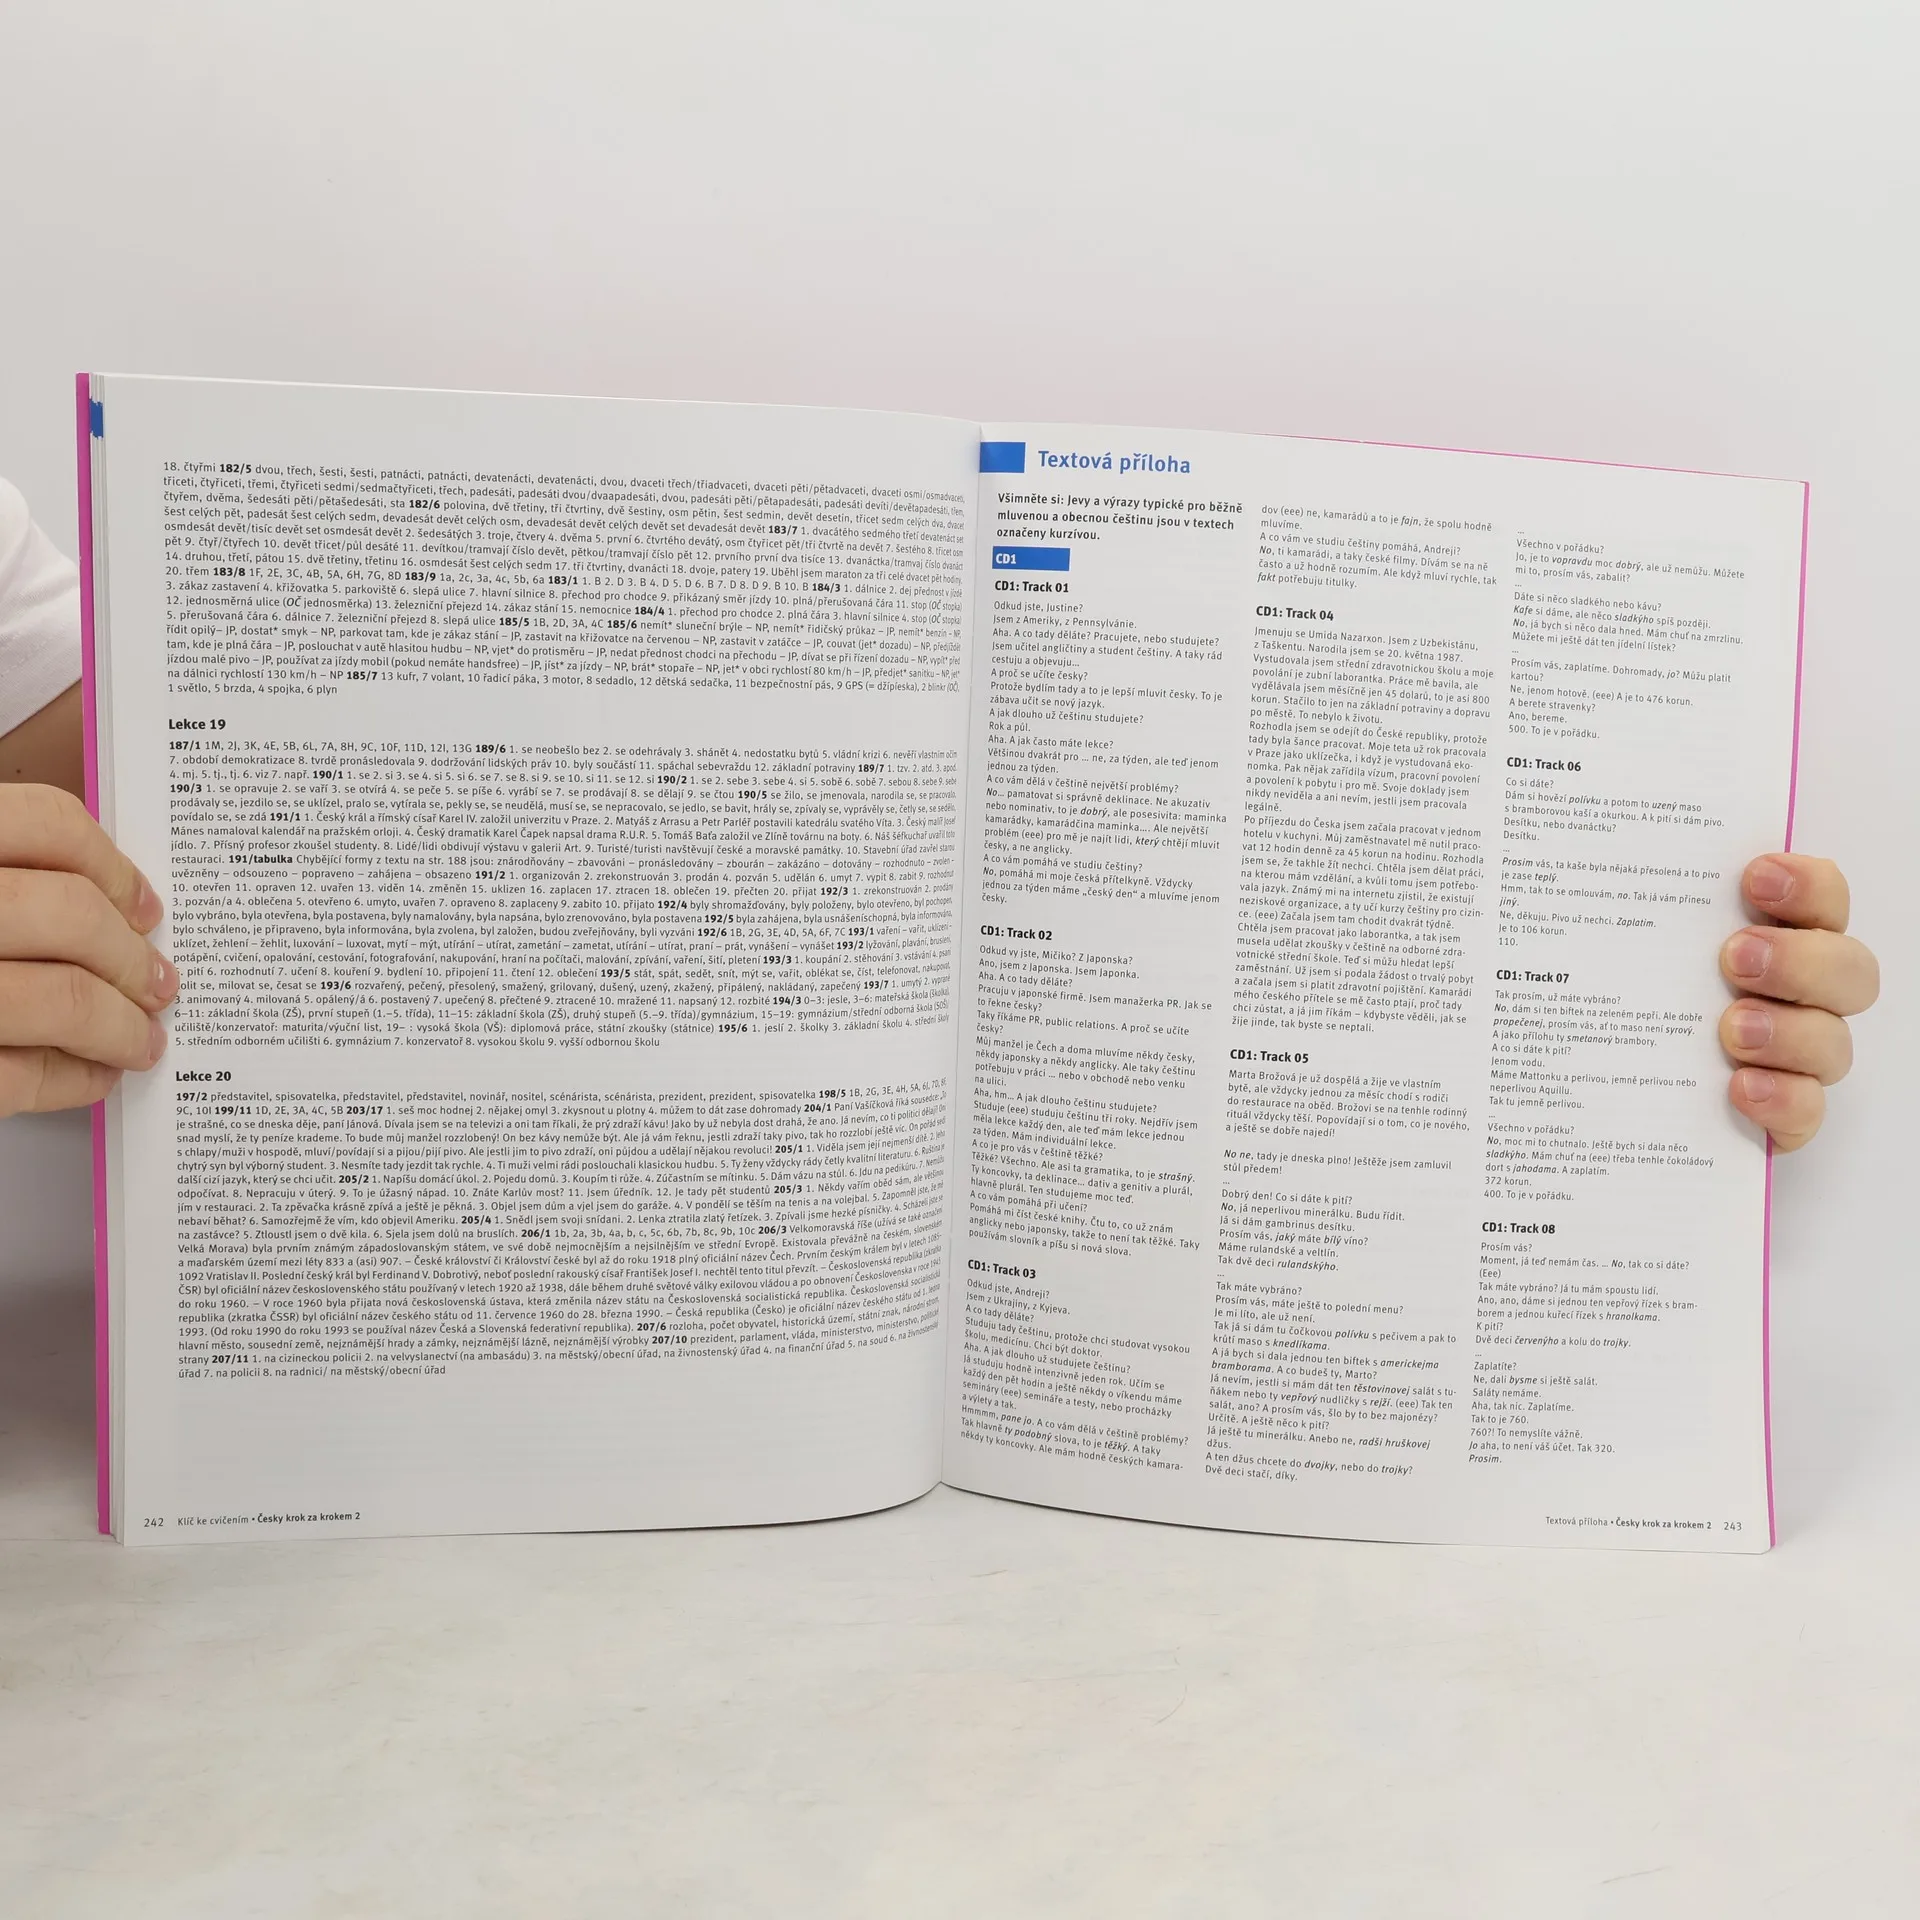 18. čtyřmi 182/5 dvou, třech, šesti, šesti, patnácti, patnácti, devatenácti, devatenácti, dvou, dvaceti třech/třiadvaceti, dvaceti pěti/pětadvaceti, dvaceti osmi/osmadvaceti,
třiceti, čtyřiceti, třemi, čtyřiceti sedmi/sedmačtyřiceti, třech, padesáti, padesáti dvou/dvaapadesáti, dvou, padesáti pěti/pětapadesáti, padesáti devíti/devětapadesáti, třem,
čtyřem, dvěma, šedesáti pěti/pětašedesáti, sta 182/6 polovina, dvě třetiny, tři čtvrtiny, dvě šestiny, osm pětin, šest sedmin, devět desetin, třicet sedm celých dva, dvacet
šest celých pět, padesát šest celých sedm, devadesát devět celých osm, devadesát devět celých devět set devadesát devět 183/7 1. dvacátého sedmého třetí devatenáct set
osmdesát devět/tisíc devět set osmdesát devět 2. šedesátých 3. troje, čtvery 4. dvěma 5. první 6. čtvrtého devátý, osm čtyřicet pět/tři čtvrtě na devět 7. šestého 8. třicet osm
pět 9. čtyř/čtyřech 10. devět třicet/půl desáté 11. devítkou/tramvají číslo devět, pětkou/tramvají číslo pět 12. prvního první dva tisíce 13. dvanáctka/tramvaj číslo dvanáct
14. druhou, třetí, pátou 15. dvě třetiny, třetinu 16. osmdesát šest celých sedm 17. tři čtvrtiny, dvanácti 18. dvoje, patery 19. Uběhl jsem maraton za tři celé dvacet pět hodiny.
20. třem 183/8 1F, 2E, 3C, 4B, 5A, 6H, 7G, 8D 183/9 1a, 2c, 3a, 4c, 5b, 6a 183/1 1. B 2. D 3. B 4. D 5. D 6. B 7. D 8. D 9. B 10. B 184/3 1. dálnice 2. dej přednost v jízdě
3. zákaz zastavení 4. křižovatka 5. parkoviště 6. slepá ulice 7. hlavní silnice 8. přechod pro chodce 9. přikázaný směr jízdy 10. plná/přerušovaná čára 11. stop (OČ stopka)
12. jednosměrná ulice (OČ jednosměrka) 13. železniční přejezd 14. zákaz stání 15. nemocnice 184/4 1. přechod pro chodce 2. plná čára 3. hlavní silnice 4. stop (OČ stopka)
5. přerušovaná čára 6. dálnice 7. železniční přejezd 8. slepá ulice 185/5 1B, 2D, 3A, 4C 185/6 nemít* sluneční brýle – NP, nemít* řidičský průkaz – JP, nemít* benzín – NP,
řídit opilý– JP, dostat* smyk – NP, parkovat tam, kde je zákaz stání – JP, zastavit na křižovatce na červenou – NP, zastavit v zatáčce – JP, couvat (jet* dozadu) – NP, předjíždět
tam, kde je plná čára – JP, poslouchat v autě hlasitou hudbu – NP, vjet* do protisměru – JP, nedat přednost chodci na přechodu – JP, dívat se při řízení dozadu – NP, vypít* před
jízdou malé pivo – JP, používat za jízdy mobil (pokud nemáte handsfree) – JP, jíst* za jízdy – NP, brát* stopaře – NP, jet* v obci rychlostí 80 km/h – JP, předjet* sanitku – NP, jet*
na dálnici rychlostí 130 km/h – NP 185/7 13 kufr, 7 volant, 10 řadicí páka, 3 motor, 8 sedadlo, 12 dětská sedačka, 11 bezpečnostní pás, 9 GPS (= džípíeska), 2 blinkr (OČ),
1 světlo, 5 brzda, 4 spojka, 6 plyn
Lekce 19
187/1 1M, 2J, 3K, 4E, 5B, 6L, 7A, 8H, 9C, 10F, 11D, 12I, 13G 189/6 1. se neobešlo bez 2. se odehrávaly 3. shánět 4. nedostatku bytů 5. vládní krizi 6. nevěří vlastním očím
7. období demokratizace 8. tvrdě pronásledovala 9. dodržování lidských práv 10. byly součástí 11. spáchal sebevraždu 12. základní potraviny 189/7 1. tzv. 2. atd. 3. apod.
4. mj. 5. tj., tj. 6. viz 7. např. 190/1 1. se 2. si 3. se 4. si 5. si 6. se 7. se 8. si 9. se 10. si 11. se 12. si 190/2 1. se 2. sebe 3. sebe 4. si 5. sobě 6. sobě 7. sebou 8. sebe 9. sebe
190/3 1. se opravuje 2. se vaří 3. se otvírá 4. se peče 5. se píše 6. vyrábí se 7. se prodávají 8. se dělají 9. se čtou 190/5 se žilo, se jmenovala, narodila se, se pracovalo,
prodávaly se, jezdilo se, se uklízel, pralo se, vytírala se, pekly se, se neudělá, musí se, se nepracovalo, se jedlo, se bavit, hrály se, zpívaly se, vyprávěly se, četly se, se sedělo,
povídalo se, se zdá 191/1 1. Český král a římský císař Karel IV. založil univerzitu v Praze. 2. Matyáš z Arrasu a Petr Parléř postavili katedrálu svatého Víta. 3. Český malíř Josef
Mánes namaloval kalendář na pražském orloji. 4. Český dramatik Karel Čapek napsal drama R.U.R. 5. Tomáš Baťa založil ve Zlíně továrnu na boty. 6. Náš šéfkuchař uvařil toto
jídlo. 7. Přísný profesor zkoušel studenty. 8. Lidé/lidi obdivují výstavu v galerii Art. 9. Turisté/turisti navštěvují české a moravské památky. 10. Stavební úřad zavřel starou
restauraci. 191/tabulka Chybějící formy z textu na str. 188 jsou: znárodňovány – zbavováni – pronásledovány – zbourán – zakázáno – dotovány – rozhodnuto – zvolen –
uvězněny – odsouzeno – popraveno – zahájena – obsazeno 191/2 1. organizován 2. zrekonstruován 3. prodán 4. pozván 5. udělán 6. umyt 7. vypit 8. zabit 9. rozhodnut
10. otevřen 11. opraven 12. uvařen 13. viděn 14. změněn 15. uklizen 16. zaplacen 17. ztracen 18. oblečen 19. přečten 20. přijat 192/3 1. zrekonstruován 2. prodány
3. pozván/a 4. oblečena 5. otevřeno 6. umyto, uvařen 7. opraveno 8. zaplaceny 9. zabito 10. přijato 192/4 byly shromažďovány, byly položeny, bylo otevřeno, byl pochopen,
bylo vybráno, byla otevřena, byla postavena, byly namalovány, byla napsána, bylo zrenovováno, byla postavena 192/5 byla zahájena, byla usnášeníschopná, byla informována,
bylo schváleno, je připraveno, byla informována, byla zvolena, byl založen, budou zveřejňovány, byli vyzváni 192/6 1B, 2G, 3E, 4D, 5A, 6F, 7C 193/1 vaření – vařit, uklízení –
uklízet, žehlení – žehlit, luxování – luxovat, mytí – mýt, utírání – utírat, zametání – zametat, utírání – utírat, praní – prát, vynášení – vynášet 193/2 lyžování, plavání, bruslení,
potápění, cvičení, opalování, cestování, fotografování, nakupování, hraní na počítači, malování, zpívání, vaření, šití, pletení 193/3 1. koupání 2. stěhování 3. vstávání 4. psaní
5. pití 6. rozhodnutí 7. učení 8. kouření 9. bydlení 10. připojení 11. čtení 12. oblečení 193/5 stát, spát, sedět, snít, mýt se, vařit, oblékat se, číst, telefonovat, nakupovat,
olit se, milovat se, česat se 193/6 rozvařený, pečený, přesolený, smažený, grilovaný, dušený, uzený, zkažený, připálený, nakládaný, zapečený 193/7 1. umytý 2. vyprané
3. animovaný 4. milovaná 5. opálený/á 6. postavený 7. upečený 8. přečtené 9. ztracené 10. mražené 11. napsaný 12. rozbité 194/3 0–3: jesle, 3–6: mateřská škola (školka),
6–11: základní škola (ZŠ), první stupeň (1.–5. třída), 11–15: základní škola (ZŠ), druhý stupeň (5.–9. třída)/gymnázium, 15–19: gymnázium/střední odborná škola (SOŠ)
učiliště/konzervatoř: maturita/výuční list, 19– : vysoká škola (VŠ): diplomová práce, státní zkoušky (státnice) 195/6 1. jeslí 2. školky 3. základní školu 4. střední školy
5. středním odborném učilišti 6. gymnázium 7. konzervatoř 8. vysokou školu 9. vyšší odbornou školu
Lekce 20
197/2 představitel, spisovatelka, představitel, představitel, novinář, nositel, scénárista, scénárista, prezident, prezident, spisovatelka 198/5 1B, 2G, 3E, 4H, 5A, 6J, 7D, 8F,
9C, 10I 199/11 1D, 2E, 3A, 4C, 5B 203/17 1. seš moc hodnej 2. nějakej omyl 3. zkysnout u plotny 4. můžem to dát zase dohromady 204/1 Paní Vašíčková říká sousedce: „To
je strašné, co se dneska děje, paní Jánová. Dívala jsem se na televizi a oni tam říkali, že prý zdraží kávu! Jako by už nebyla dost drahá, že ano. Já nevím, co ti politici dělají? Oni
snad myslí, že ty peníze krademe. To bude můj manžel rozzlobený! On bez kávy nemůže být. Ale já vám řeknu, jestli zdraží taky pivo, tak ho rozzlobí ještě víc. On pořád sedí
s chlapy/muži v hospodě, mluví/povídají si a pijou/pijí pivo. Ale jestli jim to pivo zdraží, oni půjdou a udělají nějakou revoluci! 205/1 1. Viděla jsem její nejmenší dítě. 2. Jeho
chytrý syn byl výborný student. 3. Nesmíte tady jezdit tak rychle. 4. Ti muži velmi rádi poslouchali klasickou hudbu. 5. Ty ženy vždycky rády četly kvalitní literaturu. 6. Ruština je
další cizí jazyk, který se chci učit. 205/2 1. Napíšu domácí úkol. 2. Pojedu domů. 3. Koupím ti růže. 4. Zúčastním se mítinku. 5. Dám vázu na stůl. 6. Jdu na pedikúru. 7. Nemůžu
odpočívat. 8. Nepracuju v úterý. 9. To je úžasný nápad. 10. Znáte Karlův most? 11. Jsem úředník. 12. Je tady pět studentů 205/3 1. Někdy vařím oběd sám, ale většinou
jím v restauraci. 2. Ta zpěvačka krásně zpívá a ještě je pěkná. 3. Objel jsem dům a vjel jsem do garáže. 4. V pondělí se těším na tenis a na volejbal. 5. Zapomněl jste, že mě
nebaví běhat? 6. Samozřejmě že vím, kdo objevil Ameriku. 205/4 1. Snědl jsem svoji snídani. 2. Lenka ztratila zlatý řetízek. 3. Zpívali jsme hezké písničky. 4. Scházeli jste se
na zastávce? 5. Ztloustl jsem o dvě kila. 6. Sjela jsem dolů na bruslích. 206/1 1b, 2a, 3b, 4a, b, c, 5c, 6b, 7b, 8c, 9b, 10c 206/3 Velkomoravská říše (užívá se také označení
Velká Morava) byla prvním známým západoslovanským státem, ve své době nejmocnějším a nejsilnějším ve střední Evropě. Existovala převážně na českém, slovenském
a maďarském území mezi léty 833 a (asi) 907. – České království či Království české byl až do roku 1918 plný oficiální název Čech. Prvním českým králem byl v letech 1085–
1092 Vratislav II. Poslední český král byl Ferdinand V. Dobrotivý, neboť poslední rakouský císař František Josef I. nechtěl tento titul převzít. – Československá republika (zkratka
ČSR) byl oficiální název československého státu používaný v letech 1920 až 1938, dále během druhé světové války exilovou vládou a po obnovení Československa v roce 1945
do roku 1960. – V roce 1960 byla přijata nová československá ústava, která změnila název státu na Československá socialistická republika. Československá socialistická
republika (zkratka ČSSR) byl oficiální název československého státu od 11. července 1960 do 28. března 1990. – Česká republika (Česko) je oficiální název českého státu od 1. ledna
1993. (Od roku 1990 do roku 1993 se používal název Česká a Slovenská federativní republika). 207/6 rozloha, počet obyvatel, historická území, státní znak, národní strom,
hlavní město, sousední země, nejznámější hrady a zámky, nejznámější lázně, nejznámější výrobky 207/10 prezident, parlament, vláda, ministerstvo, ministerstvo, politické
strany 207/11 1. na cizineckou policii 2. na velvyslanectví (na ambasádu) 3. na městský/obecní úřad, na živnostenský úřad 4. na finanční úřad 5. na soud 6. na živnostenský
úřad 7. na policii 8. na radnici/ na městský/obecní úřad
242 Klíč ke cvičením • Česky krok za krokem 2
Textová příloha
Všimněte si: Jevy a výrazy typické pro běžně
mluvenou a obecnou češtinu jsou v textech
označeny kurzívou.
CD1
CD1: Track 01
Odkud jste, Justine?
Jsem z Ameriky, z Pennsylvánie.
Aha. A co tady děláte? Pracujete, nebo studujete?
Jsem učitel angličtiny a student češtiny. A taky rád
cestuju a objevuju...
A proč se učíte česky?
Protože bydlím tady a to je lepší mluvit česky. To je
zábava učit se nový jazyk.
A jak dlouho už češtinu studujete?
Rok a půl.
Aha. A jak často máte lekce?
Většinou dvakrát pro ... ne, za týden, ale teď jenom
jednou za týden.
A co vám dělá v češtině největší problémy?
No... pamatovat si správně deklinace. Ne akuzativ
nebo nominativ, to je dobrý, ale posesivita: maminka
kamarádky, kamarádčina maminka.... Ale největší
problém (eee) pro mě je najít lidi, který chtějí mluvit
česky, a ne anglicky.
A co vám pomáhá ve studiu češtiny?
No, pomáhá mi moje česká přítelkyně. Vždycky
jednou za týden máme „český den“ a mluvíme jenom
česky.
CD1: Track 02
Odkud vy jste, Mičiko? Z Japonska?
Ano, jsem z Japonska. Jsem Japonka.
Aha. A co tady děláte?
Pracuju v japonské firmě. Jsem manažerka PR. Jak se
to řekne česky?
Taky říkáme PR, public relations. A proč se učíte
česky?
Můj manžel je Čech a doma mluvíme někdy česky,
někdy japonsky a někdy anglicky. Ale taky češtinu
potřebuju v práci ... nebo v obchodě nebo venku
na ulici.
Aha, hm... A jak dlouho češtinu studujete?
Studuje (eee) studuju češtinu tři roky. Nejdřív jsem
měla lekce každý den, ale teď mám lekce jednou
za týden. Mám individuální lekce.
A co je pro vás v češtině těžké?
Těžké? Všechno. Ale asi ta gramatika, to je strašný.
Ty koncovky, ta deklinace... dativ a genitiv a plurál,
hlavně plurál. Ten studujeme moc teď.
A co vám pomáhá při učení?
Pomáhá mi číst české knihy. Čtu to, co už znám
anglicky nebo japonsky, takže to není tak těžké. Taky
používám slovník a píšu si nová slova.
CD1: Track 03
Odkud jste, Andreji?
Jsem z Ukrajiny, z Kyjeva.
A co tady děláte?
Studuju tady češtinu, protože chci studovat vysokou
školu, medicínu. Chci být doktor.
Aha. A jak dlouho už studujete češtinu?
Já studuju hodně intenzivně jeden rok. Učím se
každý den pět hodin a ještě někdy o víkendu máme
semináry (eee) semináře a testy, nebo procházky
a výlety a tak.
Hmmmm, pane jo. A co vám dělá v češtině problémy?
Tak hlavně ty podobný slova, to je těžký. A taky
někdy ty koncovky. Ale mám hodně českých kamara-
dov (eee) ne, kamarádů a to je fajn, že spolu hodně
mluvíme.
A co vám ve studiu češtiny pomáhá, Andreji?
No, ti kamarádi, a taky české filmy. Dívám se na ně
často a už hodně rozumím. Ale když mluví rychle, tak
fakt potřebuju titulky.
CD1: Track 04
Jmenuju se Umida Nazarxon. Jsem z Uzbekistánu,
z Taškentu. Narodila jsem se 20. května 1987.
Vystudovala jsem střední zdravotnickou školu a moje
povolání je zubní laborantka. Práce mě bavila, ale
vydělávala jsem měsíčně jen 45 dolarů, to je asi 800
korun. Stačilo to jen na základní potraviny a dopravu
po městě. To nebylo k životu.
Rozhodla jsem se odejít do České republiky, protože
tady byla šance pracovat. Moje teta už rok pracovala
v Praze jako uklízečka, i když je vystudovaná eko-
nomka. Pak nějak zařídila vízum, pracovní povolení
a povolení k pobytu i pro mě. Svoje doklady jsem
nikdy neviděla a ani nevím, jestli jsem pracovala
legálně.
Po příjezdu do Česka jsem začala pracovat v jednom
hotelu v kuchyni. Můj zaměstnavatel mě nutil praco-
vat 12 hodin denně za 45 korun na hodinu. Rozhodla
jsem se, že takhle žít nechci. Chtěla jsem dělat práci,
na kterou mám vzdělání, a kvůli tomu jsem potřebo-
vala jazyk. Známý mi na internetu zjistil, že existují
neziskové organizace, a ty učí kurzy češtiny pro cizin-
ce. (eee) Začala jsem tam chodit dvakrát týdně.
Chtěla jsem pracovat jako laborantka, a tak jsem
musela udělat zkoušky v češtině na odborné zdra-
votnické střední škole. Teď si můžu hledat lepší
zaměstnání. Už jsem si podala žádost o trvalý pobyt
a začala jsem si platit zdravotní pojištění. Kamarádi
mého českého přítele se mě často ptají, proč tady
chci zůstat, a já jim říkám – kdybyste věděli, jak se
žije jinde, tak byste se neptali.
CD1: Track 05
Marta Brožová je už dospělá a žije ve vlastním
bytě, ale vždycky jednou za měsíc chodí s rodiči
do restaurace na oběd. Brožovi se na tenhle rodinný
rituál vždycky těší. Popovídají si o tom, co je nového,
a ještě se dobře najedí!
No ne, tady je dneska plno! Ještěže jsem zamluvil
stůl předem!
...
Dobrý den! Co si dáte k pití?
No, já neperlivou minerálku. Budu řídit.
Já si dám gambrinus desítku.
Prosím vás, jaký máte bílý víno?
Máme rulandské a veltlín.
Tak dvě deci rulandskýho.
...
Tak máte vybráno?
Prosím vás, máte ještě to polední menu?
Je mi líto, ale už není.
Tak já si dám tu čočkovou polívku s pečivem a pak to
krůtí maso s knedlíkama.
A já bych si dala jednou ten biftek s americkejma
bramborama. A co budeš ty, Marto?
Já nevím, jestli si mám dát ten těstovinovej salát s tu-
ňákem nebo ty vepřový nudličky s rejží. (eee) Tak ten
salát, ano? A prosím vás, šlo by to bez majonézy?
Určitě. A ještě něco k pití?
Já ještě tu minerálku. Anebo ne, radši hruškovej
džus.
A ten džus chcete do dvojky, nebo do trojky?
Dvě deci stačí, díky.
...
Všechno v pořádku?
Jo, je to vopravdu moc dobrý, ale už nemůžu. Můžete
mi to, prosím vás, zabalit?
...
Dáte si něco sladkého nebo kávu?
Kafe si dáme, ale něco sladkýho spíš později.
No, já bych si něco dala hned. Mám chuť na zmrzlinu.
Můžete mi ještě dát ten jídelní lístek?
...
Prosím vás, zaplatíme. Dohromady, jo? Můžu platit
kartou?
Ne, jenom hotově. (eee) A je to 476 korun.
A berete stravenky?
Ano, bereme.
500. To je v pořádku.
CD1: Track 06
Co si dáte?
Dám si hovězí polívku a potom to uzený maso
s bramborovou kaší a okurkou. A k pití si dám pivo.
Desítku, nebo dvanáctku?
Desítku.
...
Prosím vás, ta kaše byla nějaká přesolená a to pivo
je zase teplý.
Hmm, tak to se omlouvám, no. Tak já vám přinesu
jiný.
Ne, děkuju. Pivo už nechci. Zaplatim.
Je to 106 korun.
110.
CD1: Track 07
Tak prosím, už máte vybráno?
No, dám si ten biftek na zeleném pepři. Ale dobře
propečenej, prosím vás, ať to maso není syrový.
A jako přílohu ty smetanový brambory.
A co si dáte k pití?
Jenom vodu.
Máme Mattonku a perlivou, jemně perlivou nebo
neperlivou Aquillu.
Tak tu jemně perlivou.
...
Všechno v pořádku?
No, moc mi to chutnalo. Ještě bych si dala něco
sladkýho. Mám chuť na (eee) třeba tenhle čokoládový
dort s jahodama. A zaplatím.
372 korun.
400. To je v pořádku.
CD1: Track 08
Prosím vás?
Moment, já teď nemám čas. ... No, tak co si dáte?
(Eee)
Tak máte vybráno? Já tu mám spoustu lidí.
Ano, ano, dáme si jednou ten vepřový řízek s bram-
borem a jednou kuřecí řízek s hranolkama.
K pití?
Dvě deci červenýho a kolu do trojky.
...
Zaplatíte?
Ne, dali bysme si ještě salát.
Saláty nemáme.
Aha, tak nic. Zaplatíme.
Tak to je 760.
760?! To nemyslíte vážně.
Jo aha, to není váš účet. Tak 320.
Prosim.
Textová příloha • Česky krok za krokem 2 243